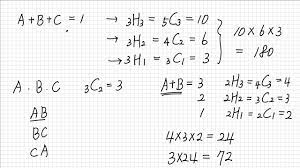 A+B+C = 1 → ₃H₃ = ₅C₃ = 10
→ ₃H₂ = ₄C₂ = 6
→ ₃H₁ = ₃C₁ = 3
10 × 6 × 3
= 180
A · B · C ₃C₂ = 3 A+B = 3 ₂H₃ = ₄C₃ = 4
AB 2 ₂H₂ = ₃C₂ = 3
BC 1 ₂H₁ = ₂C₁ = 2
CA 4×3×2 = 24
3×24 = 72